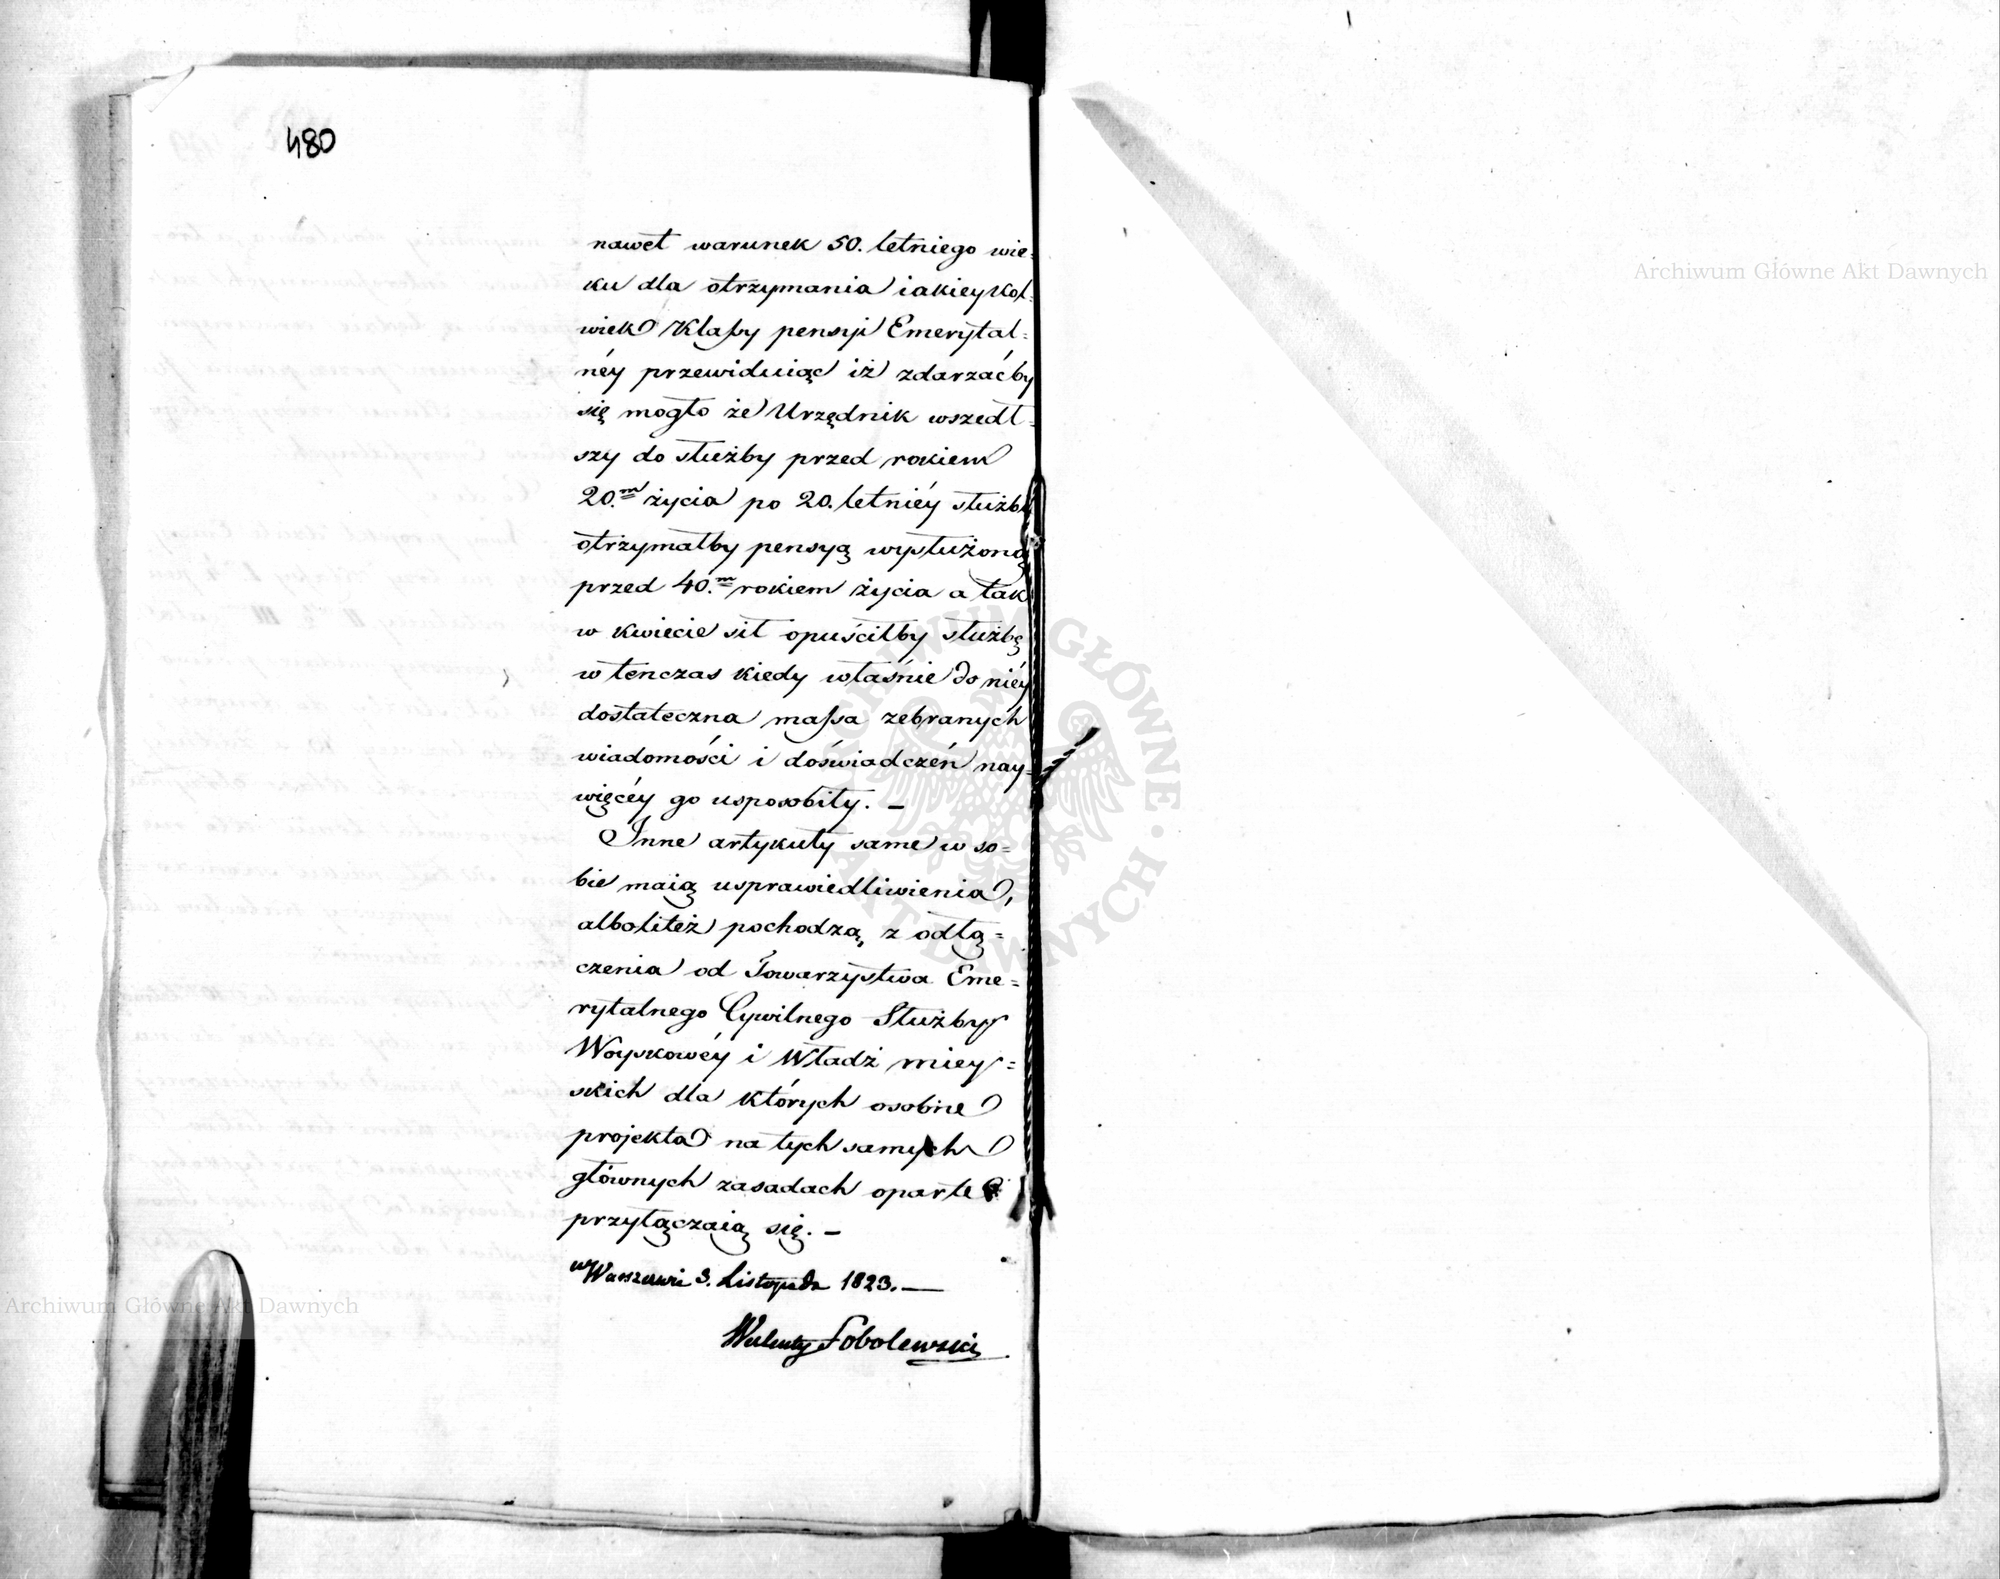 480
nawet warunek 50. letniego wie=
ku dla otrzymania iakieykol=
wiek Klaſsy pensyi Emerytal=
néy przewiduiąc iż zdarzaćby
się mogło że Urzędnik wszedł=
szy do służby przed rokiem
20.m życia po 20. letniéy służbie
otrzymałby pensyą wysłużoną
przed 40.m rokiem życia a tak
w kwiecie sił opuściłby służbę
w tenczas kiedy właśnie do niéy
dostateczna maſsa zebranych
wiadomości i doświadczeń nay=
więcéy go usposobiły. –
Inne artykuły same w so=
bie maią usprawiedliwienia,
albo też pochodzą, z odłą=
czenia od Towarzystwa Eme=
rytalnego Cywilnego Służby
Woyskowéy i Władz miey=
skich dla których osobne
projekta na tych samych
głównych zasadach oparte
przyłączaią się. –
w Warszawie 3. Listopada 1823. —
Walenty Sobolewski
Archiwum Główne Akt Dawnych
Archiwum Główne Akt Dawnych
ARCHIWUM GŁÓWNE AKT DAWNYCH